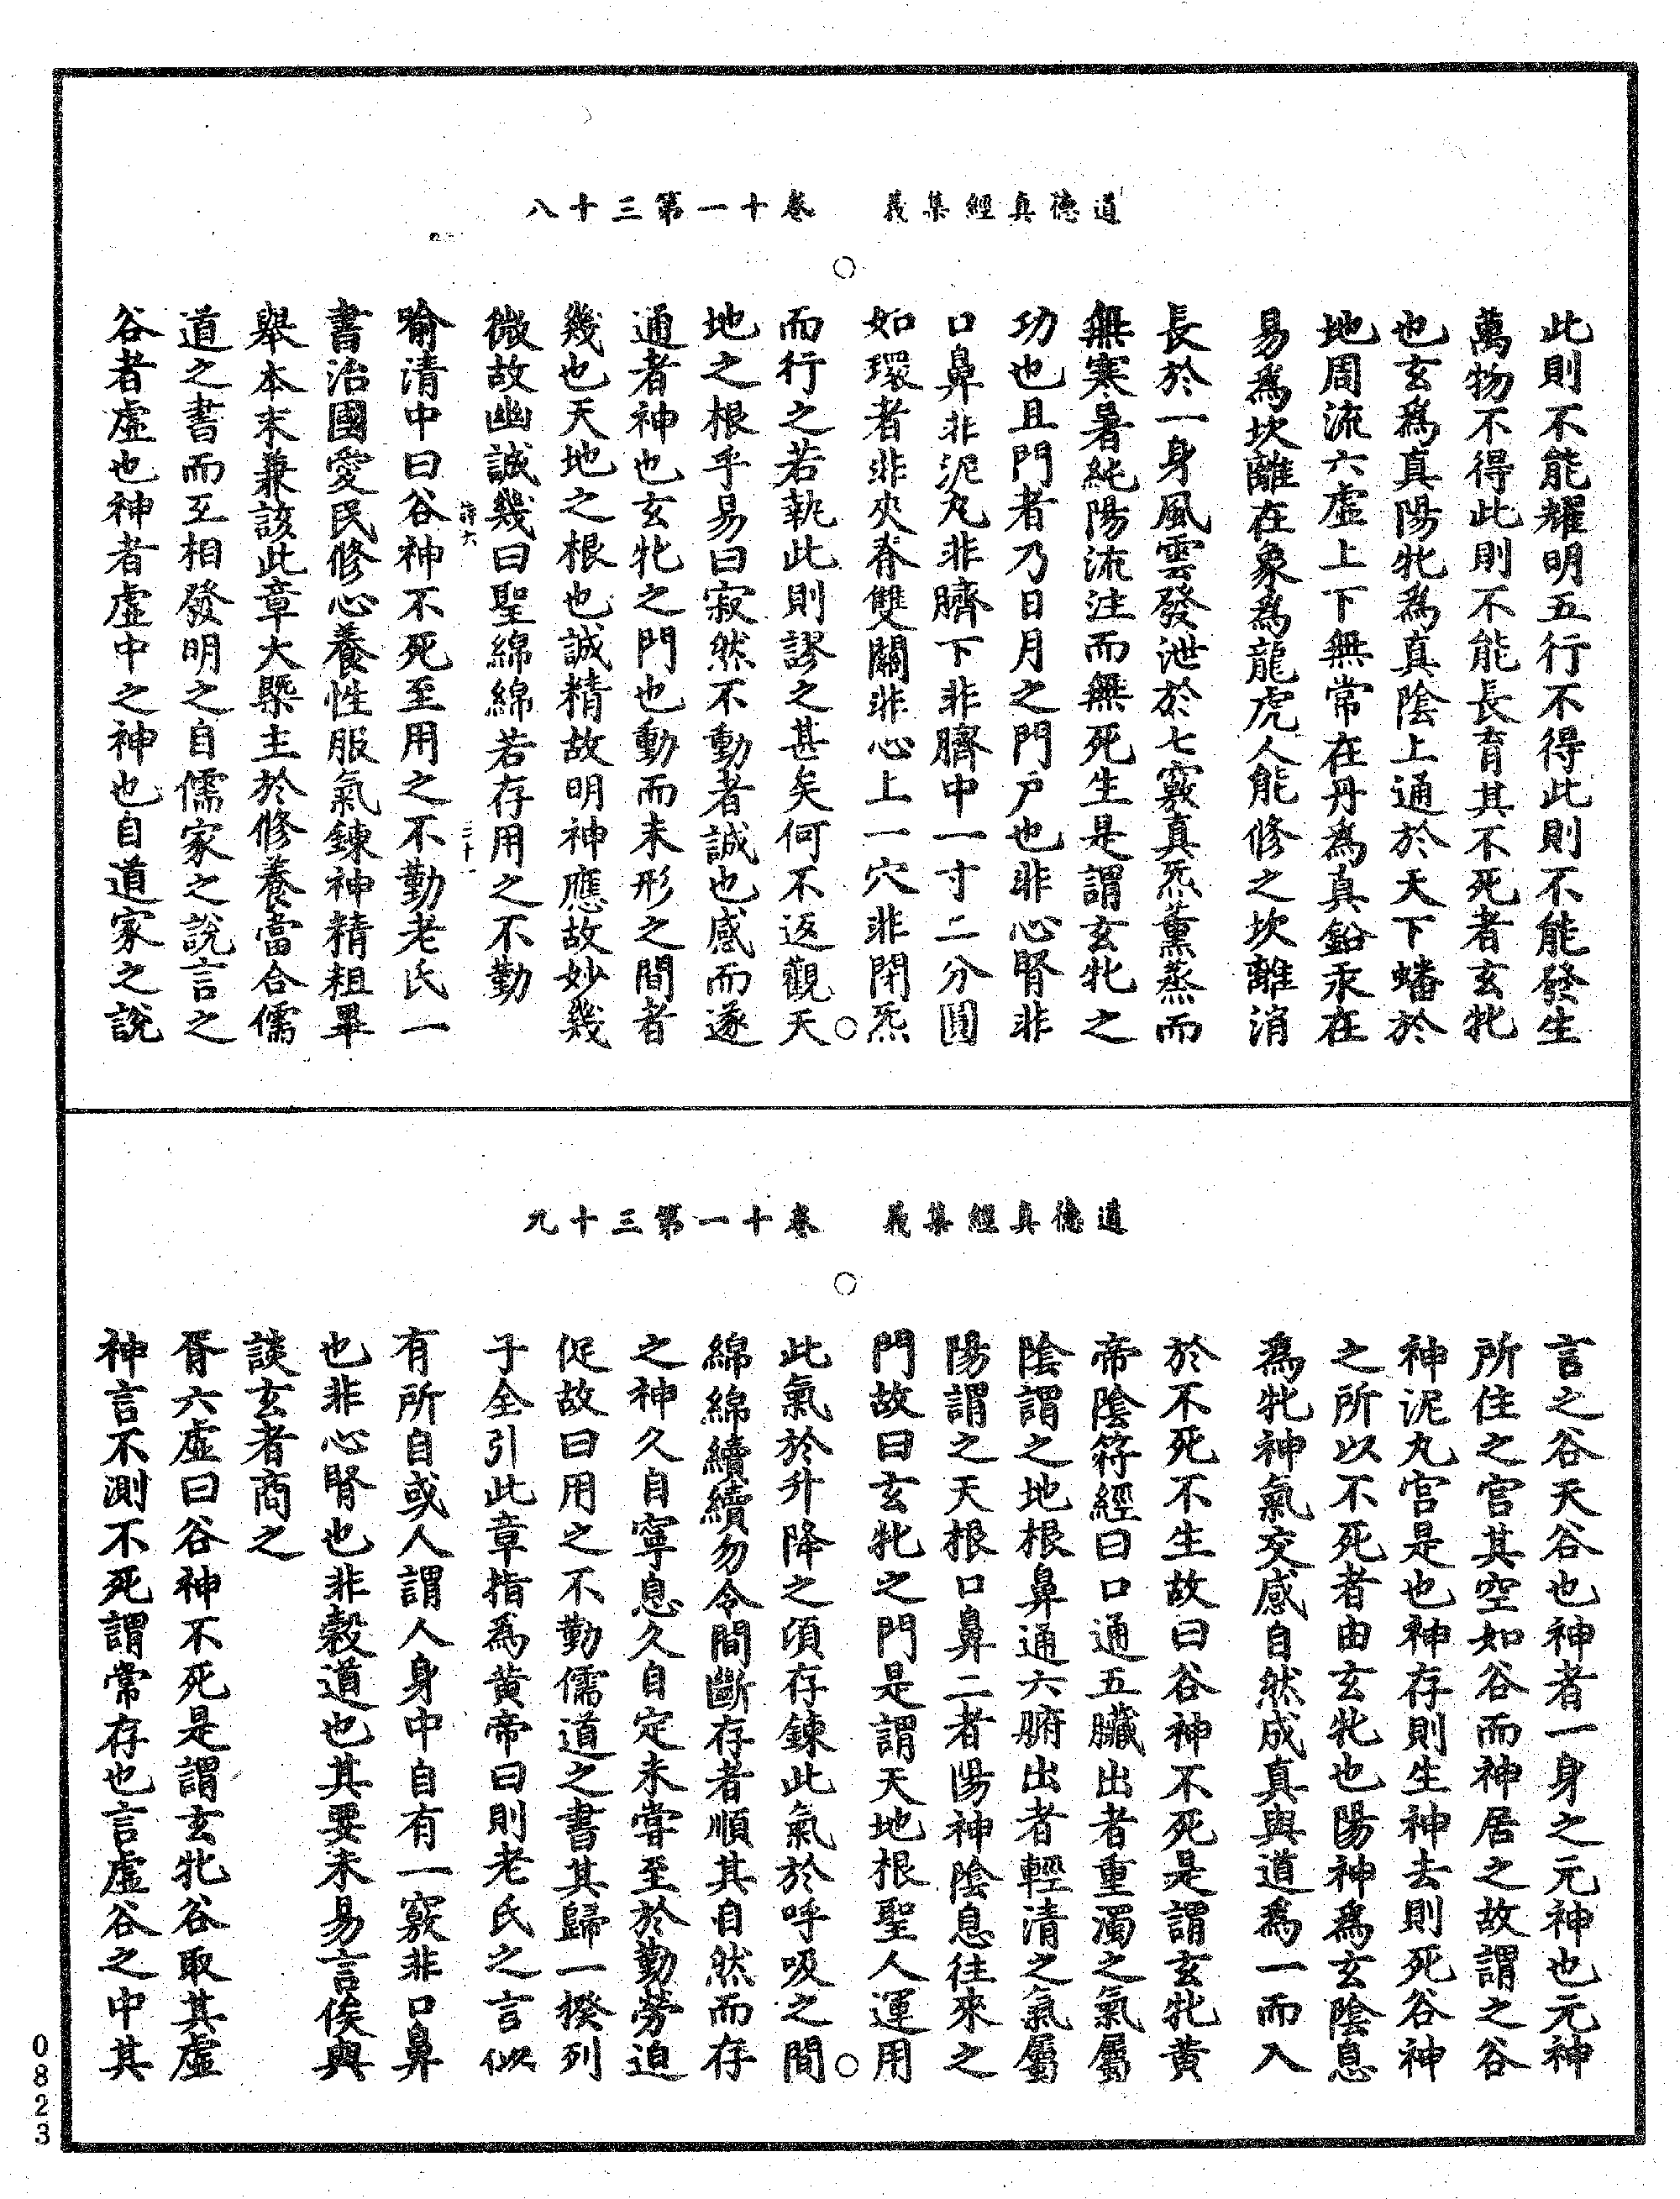 道德真經集義　卷十一第三十八
此則不能耀明五行不得此則不能發生
萬物不得此則不能長育其不死者玄牝
也玄為真陽牝為真陰上通於天下蟠於
地周流六虛上下無常在丹為真鉛汞在
易為坎離在象為龍虎人能修之坎離消
長於一身風雲發泄於七竅真炁薰蒸而
無寒暑純陽流注而無死生是謂玄牝之
功也且門者乃日月之門戶也非心腎非
口鼻非泥丸非臍下非臍中一寸二分圓
如環者非夾脊雙關非心上一穴非閉炁
而行之若執此則謬之甚矣何不返觀天
地之根乎易曰寂然不動者誠也感而遂
通者神也玄牝之門也動而未形之間者
幾也天地之根也誠精故明神應故妙幾
微故幽誠幾曰聖綿綿若存用之不勤
三十一
喻清中曰谷神不死至用之不勤老氏一
書治國愛民修心養性服氣鍊神精粗畢
舉本末兼該此章大槩主於修養當合儒
道之書而互相發明之自儒家之說言之
谷者虛也神者虛中之神也自道家之說
道德真經集義　卷十一第三十九
言之谷天谷也神者一身之元神也元神
所住之宮其空如谷而神居之故謂之谷
神泥丸宮是也神存則生神去則死谷神
之所以不死者由玄牝也陽神為玄陰息
為牝神氣交感自然成真與道為一而入
於不死不生故曰谷神不死是謂玄牝黄
帝陰符經曰口通五臟出者重濁之氣屬
陰謂之地根鼻通六腑出者輕清之氣屬
陽謂之天根口鼻二者陽神陰息往來之
門故曰玄牝之門是謂天地根聖人運用
此氣於升降之須存鍊此氣於呼吸之間
綿綿續續勿令間斷存者順其自然而存
之神久自寧息久自定未嘗至於勤勞迫
促故曰用之不勤儒道之書其歸一揆列
子全引此章指為黄帝曰則老氏之言似
有所自或人謂人身中自有一竅非口鼻
也非心腎也非穀道也其要未易言俟與
談玄者商之
胥六虛曰谷神不死是謂玄牝谷取其虛
神言不測不死謂常存也言虛谷之中其
0823